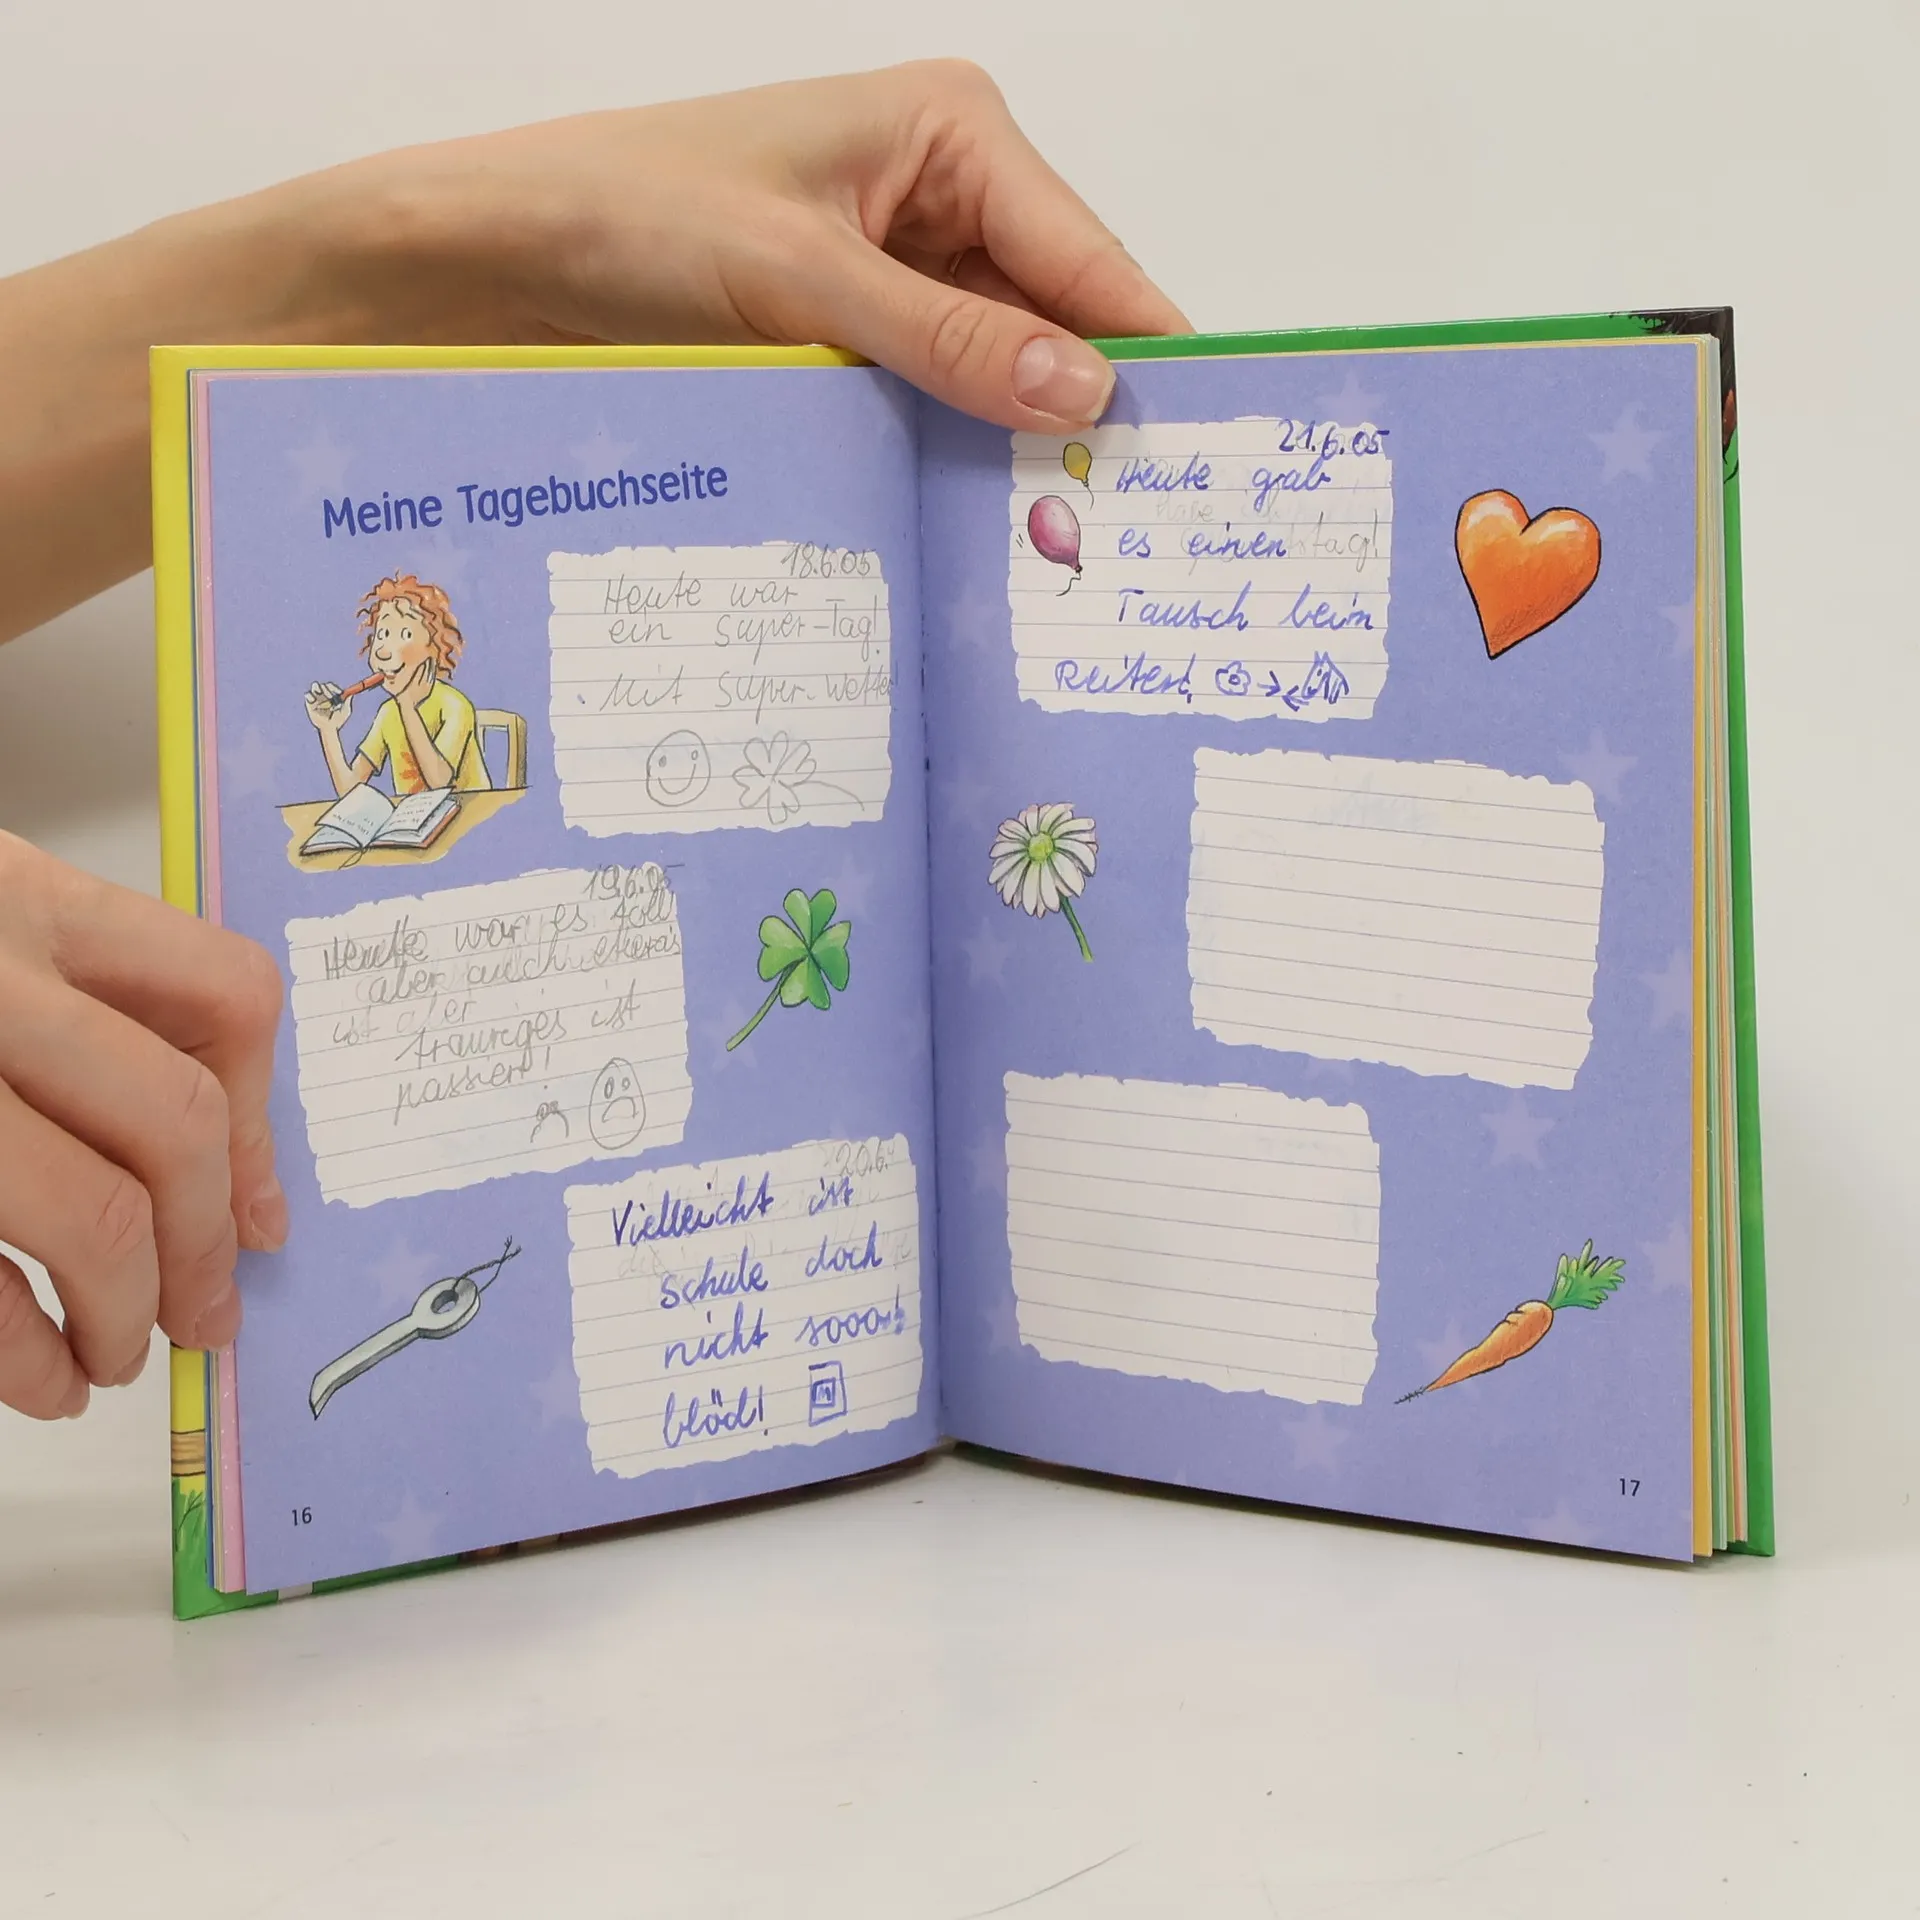 Meine Tagebuchseite
18.6.05
Heute war
ein Super-Tag!
Mit Super-Wetter!
19.6.05
Heute war es toll
aber auch etwas
ist aber
trauriges ist
passiert!
20.6.
Vielleicht ist
Schule doch
nicht sooo
blöd!
16
21.6.05
Heute grab
es einen
Tausch beim
Reiten!
17